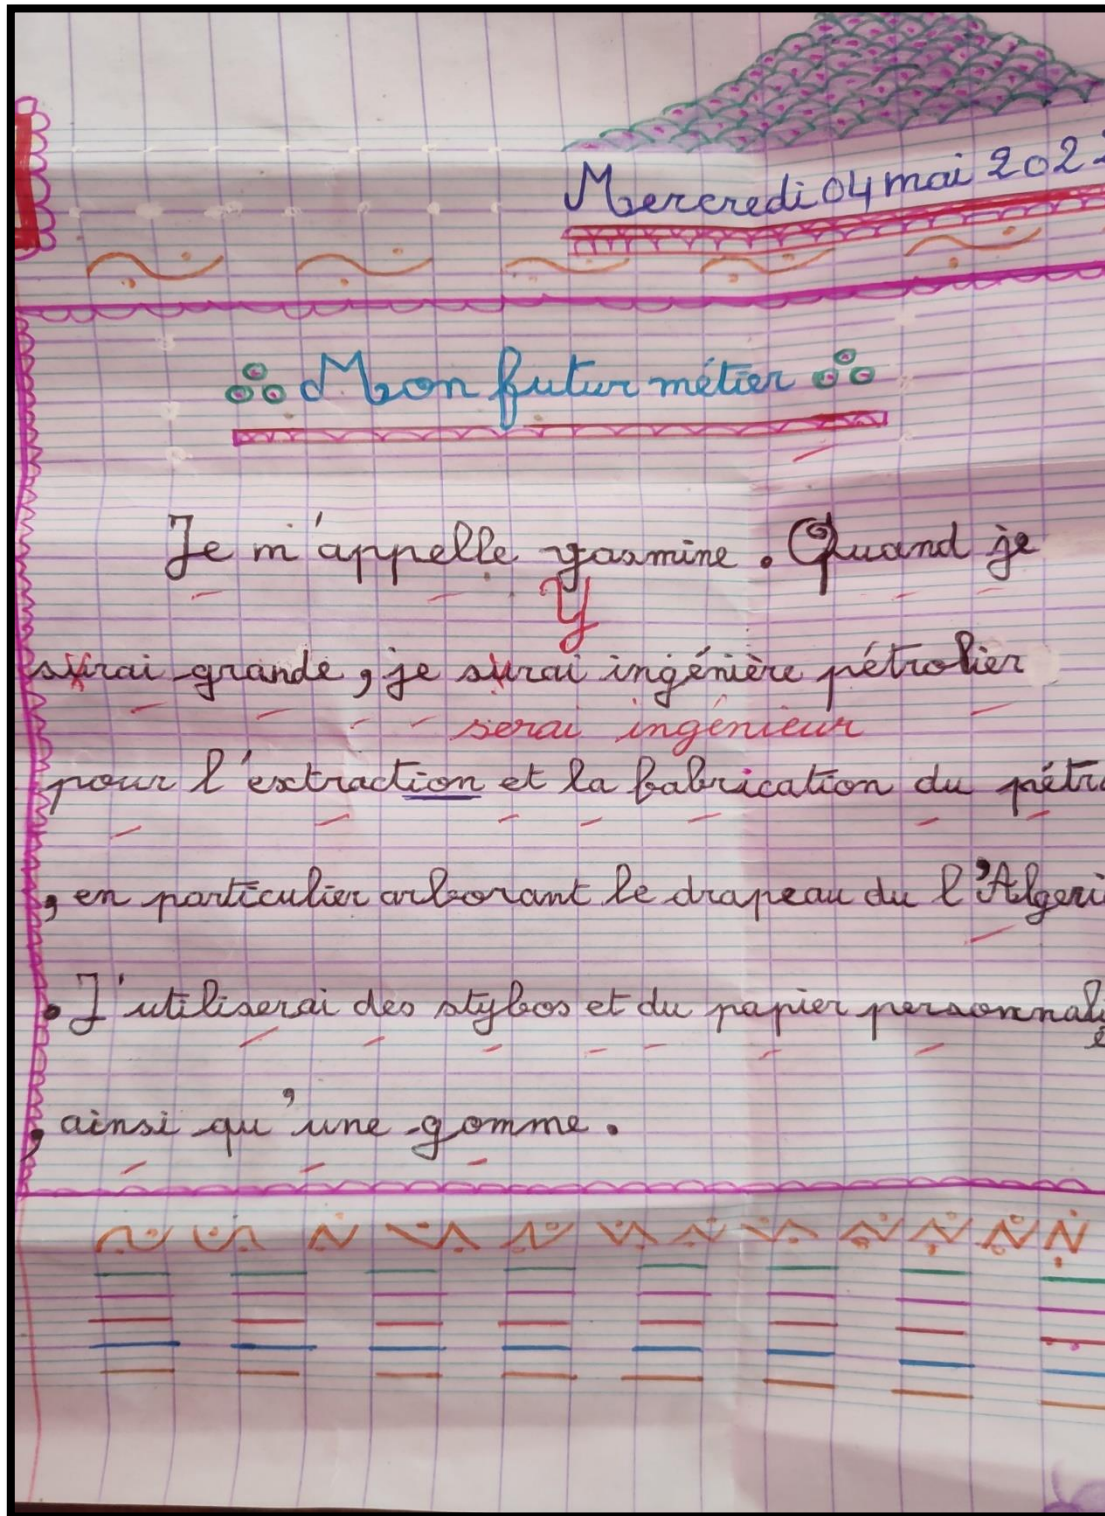 Mercredi 04 mai 202
Mon futur métier
Je m'appelle yasmine. Quand je
Y
surai grande, je surai ingénière pétrolier
serai ingénieur
pour l'extraction et la fabrication du pétr
, en particulier arborant le drapeau du l'Algeri
. J'utiliserai des stylos et du papier personnali
, ainsi qu'une gomme.